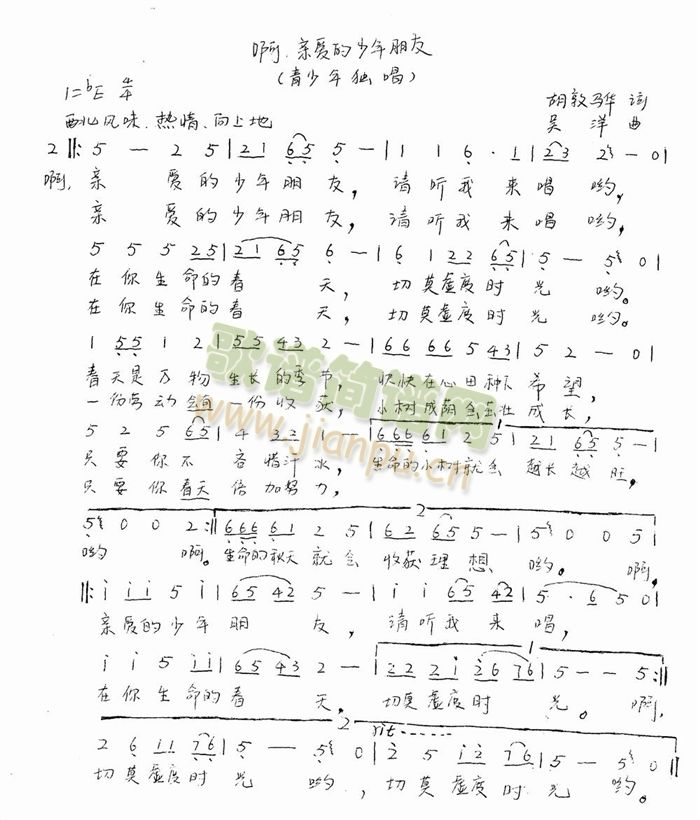 啊,亲爱的少年朋友
(青少年独唱)
1=♭E 4/4
胡敦骅 词
西北风味、热情、向上地
吴洋 曲
2 ‖: 5 — 2 5 | 2 1 6 5 5 — | 1 1 6 · 1 | 2 3 2 — 0 |
啊,亲 爱的少年朋 友, 请听我 来唱 哟,
亲 爱的少年朋 友, 请听我 来唱 哟,
5 5 5 2 5 | 2 1 6 5 6 — | 6 1 2 2 6 5 | 5 — 5 0 |
在你生命的春 天, 切莫虚度时 光 哟。
在你生命的春 天, 切莫虚度时 光 哟。
1 5 5 1 2 | 5 5 4 3 2 — | 6 6 6 6 5 4 3 | 5 2 — 0 |
春天是万物生长的季节, 快快在心田种下希望,
一份劳动 一份收获, 小树成阴 成长,
5 2 5 6 5 | 4 3 2 1 — | 6 6 6 6 1 2 5 | 2 1 6 5 5 — |
只要你不吝惜汗水, 生命的小树就会 越长越旺,
只要你春天倍加努力,
2
5 0 0 2 :‖ 6 6 6 6 1 2 5 | 6 2 6 5 5 — | 5 0 0 5 |
哟 啊。生命的秋天就会 收获理想 哟。 啊,
‖: i i i 5 i | 6 5 4 2 5 — | i i 6 5 4 2 | 5 · 6 5 0 |
亲爱的少年朋 友, 请听我来 唱,
1
i i 5 i i | 6 5 4 3 2 — | 2 2 2 i 2 6 7 6 | 5 — — 5 :‖
在你生命的春 天, 切莫虚度时 光。 啊,
2
rit------
2 6 i i 7 6 | 5 — 5 0 | 2 5 i 2 7 6 | 5 — 5 0 ‖
切莫虚度时 光 哟, 切莫虚度时 光 哟。
歌谱简谱网
www.jianpu.cn